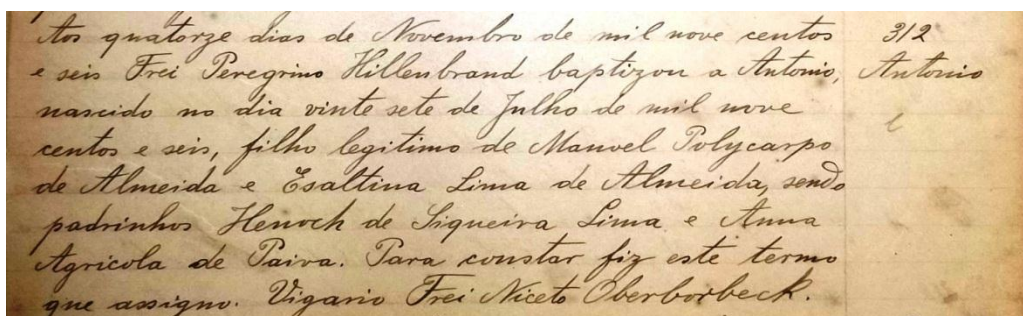 Aos quatorze dias de Novembro de mil nove centos
e seis Frei Peregrino Hillenbrand baptizou a Antonio,
nascido no dia vinte sete de Julho de mil nove
centos e seis, filho legitimo de Manoel Polycarpo
de Almeida e Esaltina Lima de Almeida, sendo
padrinhos Henoch de Siqueira Lima e Anna
Agricola de Paiva. Para constar fiz este termo
que assigno. Vigario Frei Niceto Oberborbeck.
312
Antonio
l